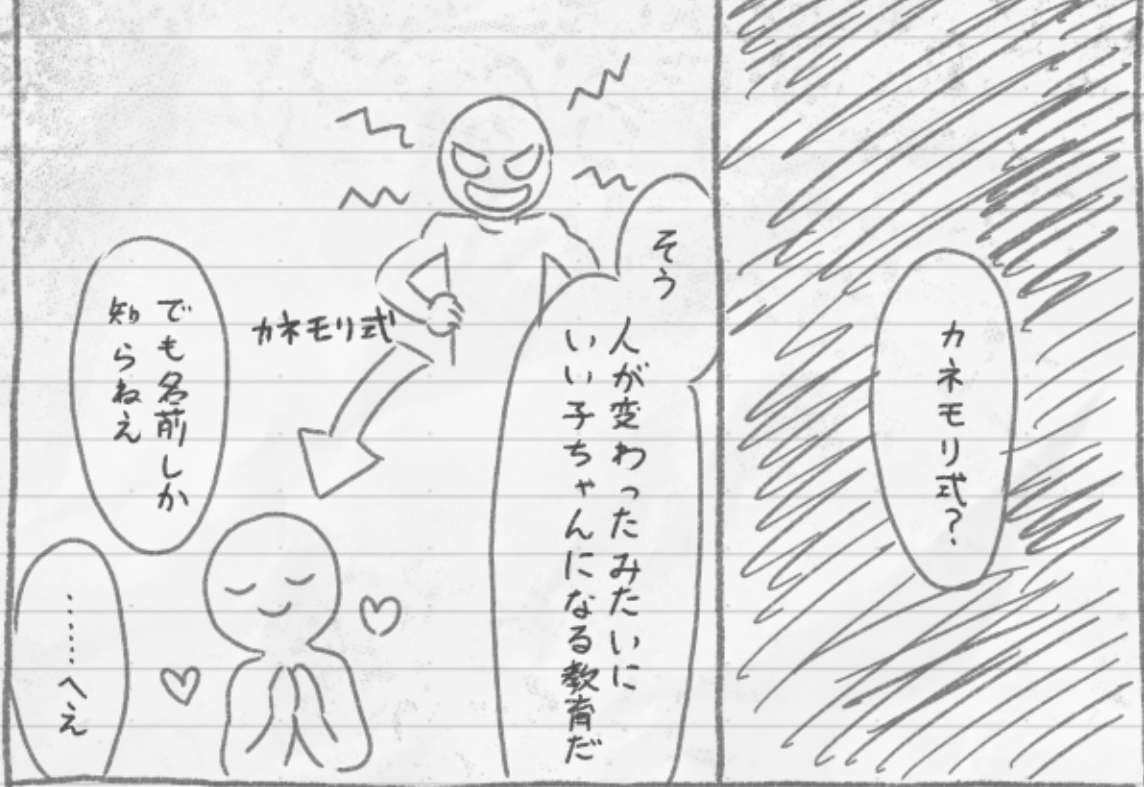 カネモリ式?
そう
人が変わったみたいに
いい子ちゃんになる教育だ
カネモリ式
でも名前しか
知らねえ
……へえ